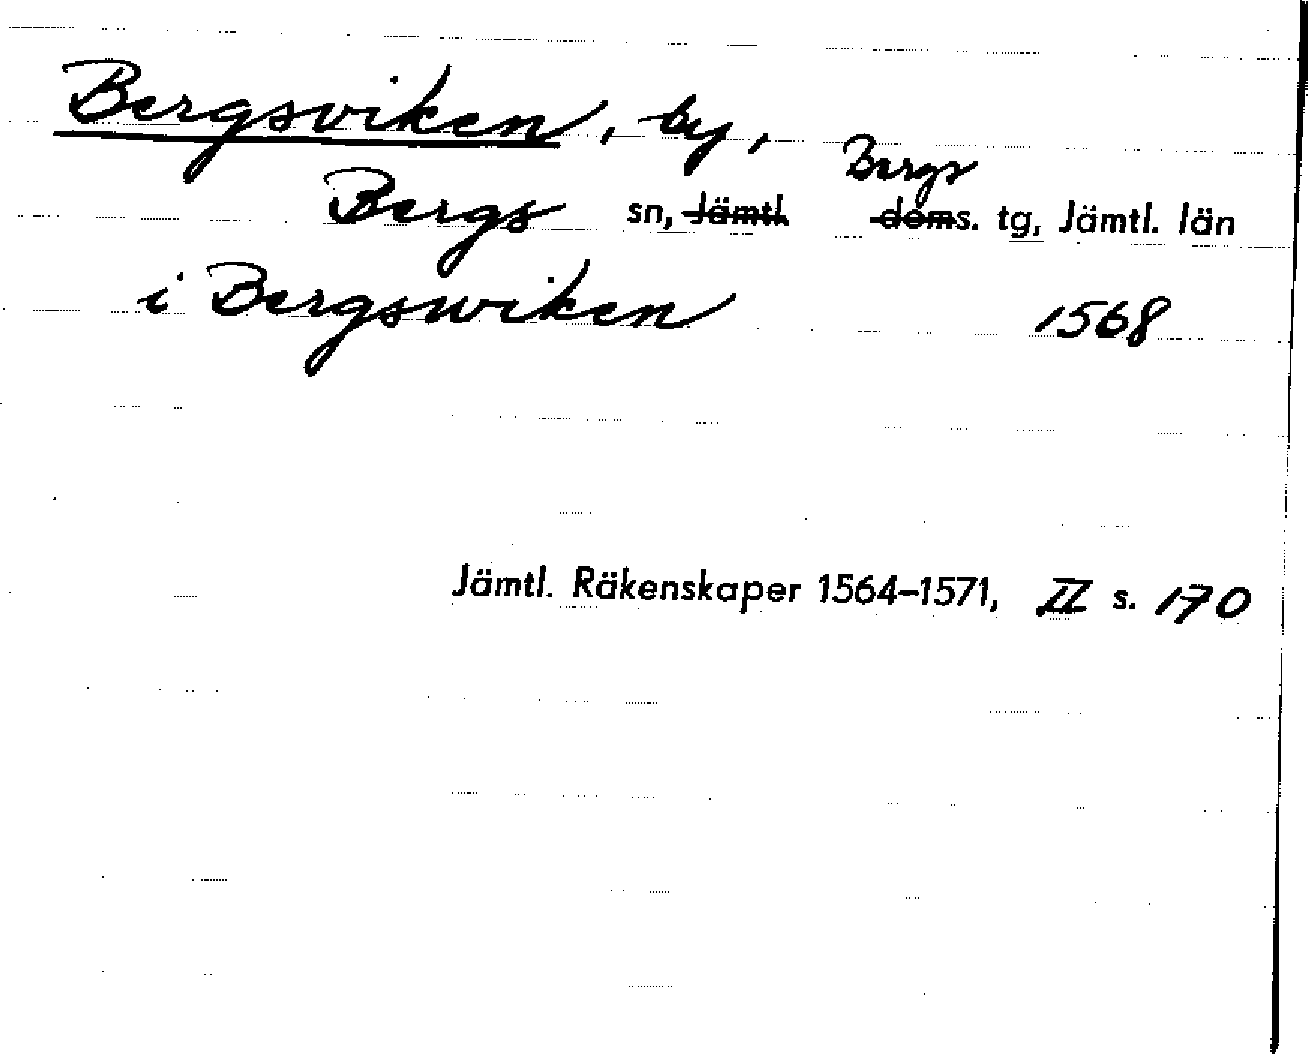 Bergsviken, by,
Bergs sn, Jämtl. Bergs doms. tg, Jämtl. län
i Bergswiken 1568
Jämtl. Räkenskaper 1564–1571, II s. 170